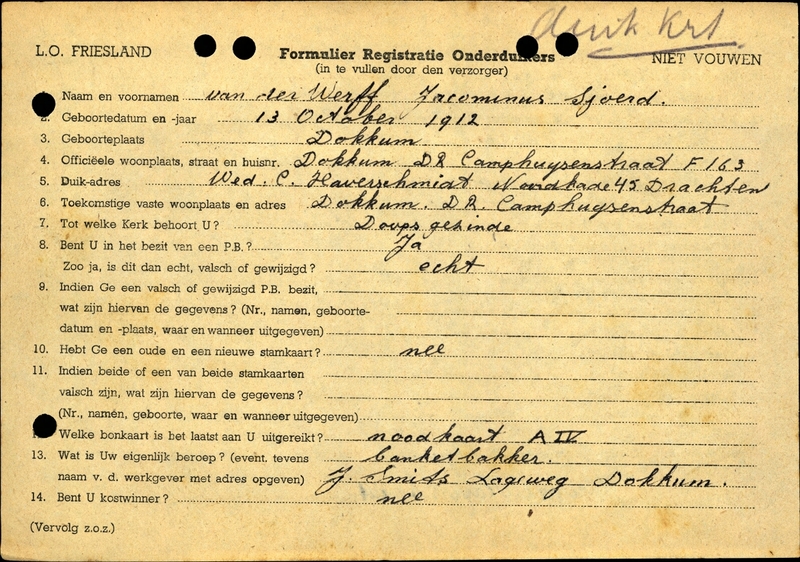 L.O. FRIESLAND
Formulier Registratie Onderduikers
(in te vullen door den verzorger)
NIET VOUWEN
Naam en voornamen van der Werff Jacominus Sjoerd.
2. Geboortedatum en -jaar 13 October 1912
3. Geboorteplaats Dokkum
4. Officiëele woonplaats, straat en huisnr. Dokkum DR Camphuysenstraat F 163
5. Duik-adres Wed. C. Haverschmidt Noordkade 45 Drachten
6. Toekomstige vaste woonplaats en adres Dokkum. DR. Camphuysenstraat
7. Tot welke Kerk behoort U? Doopsgezinde
8. Bent U in het bezit van een P.B.? Ja
Zoo ja, is dit dan echt, valsch of gewijzigd? echt
9. Indien Ge een valsch of gewijzigd P.B. bezit,
wat zijn hiervan de gegevens? (Nr., namen, geboorte-
datum en -plaats, waar en wanneer uitgegeven)
10. Hebt Ge een oude en een nieuwe stamkaart? nee
11. Indien beide of een van beide stamkaarten
valsch zijn, wat zijn hiervan de gegevens?
(Nr., namen, geboorte, waar en wanneer uitgegeven)
Welke bonkaart is het laatst aan U uitgereikt? noodkaart A IV
13. Wat is Uw eigenlijk beroep? (event. tevens banketbakker.
naam v. d. werkgever met adres opgeven) J. Smits Lageweg Dokkum.
14. Bent U kostwinner? nee
(Vervolg z.o.z.)